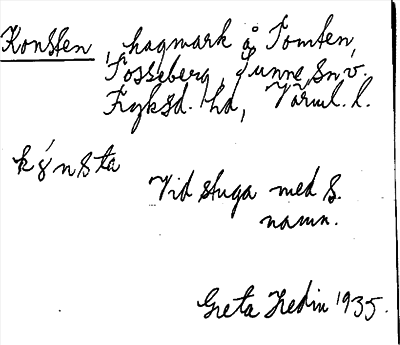 Konsten, hagmark å Tomten,
Fosseberg, Sunne sn v.
Fryksd. hd, Värml. l.
kȯ́nsta
Vid stuga med s.
namn.
Greta Hedin 1935.